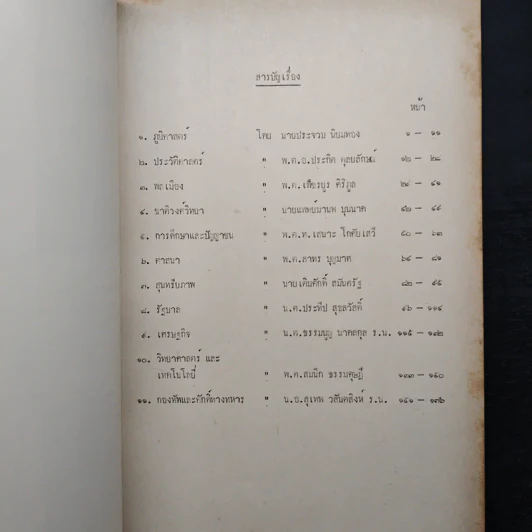 สารบัญเรื่อง
หน้า
๑. ภูมิศาสตร์ โดย นายประจวบ นิยมทอง ๑ - ๑๑
๒. ประวัติศาสตร์ " พ.ต.อ.ประกิต กุลยลักษณ์ ๑๒ - ๒๘
๓. พลเมือง " พ.ต.เกียรยูร คิริกูล ๒๙ - ๔๑
๔. ชาติวงศ์วิทยา " นายแพทย์มานพ บุนนาค ๔๒ - ๔๙
๕. การศึกษาและปัญญาชน " พ.ต.ท.เสนาะ โกศัยเสวี ๕๐ - ๖๓
๖. ศาสนา " พ.ต.สาทร บุญมาศ ๖๔ - ๘๑
๗. สุนทรียภาพ " นายเติมศักดิ์ สมันตรัฐ ๘๒ - ๙๕
๘. รัฐบาล " น.ต.ประทีป สุขสวัสดิ์ ๙๖ - ๑๑๔
๙. เศรษฐกิจ " น.ต.ธรรมนูญ นาคสกุล ร.น. ๑๑๕ - ๑๓๒
๑๐. วิทยาศาสตร์ และ
เทคโนโลยี่ " พ.ต.สมนึก ธรรมคุษฎี ๑๓๓ - ๑๕๐
๑๑. กองทัพและศักดิ์ทางทหาร " น.อ.สุเทพ วสันตสิงห์ ร.น. ๑๕๑ - ๑๗๖